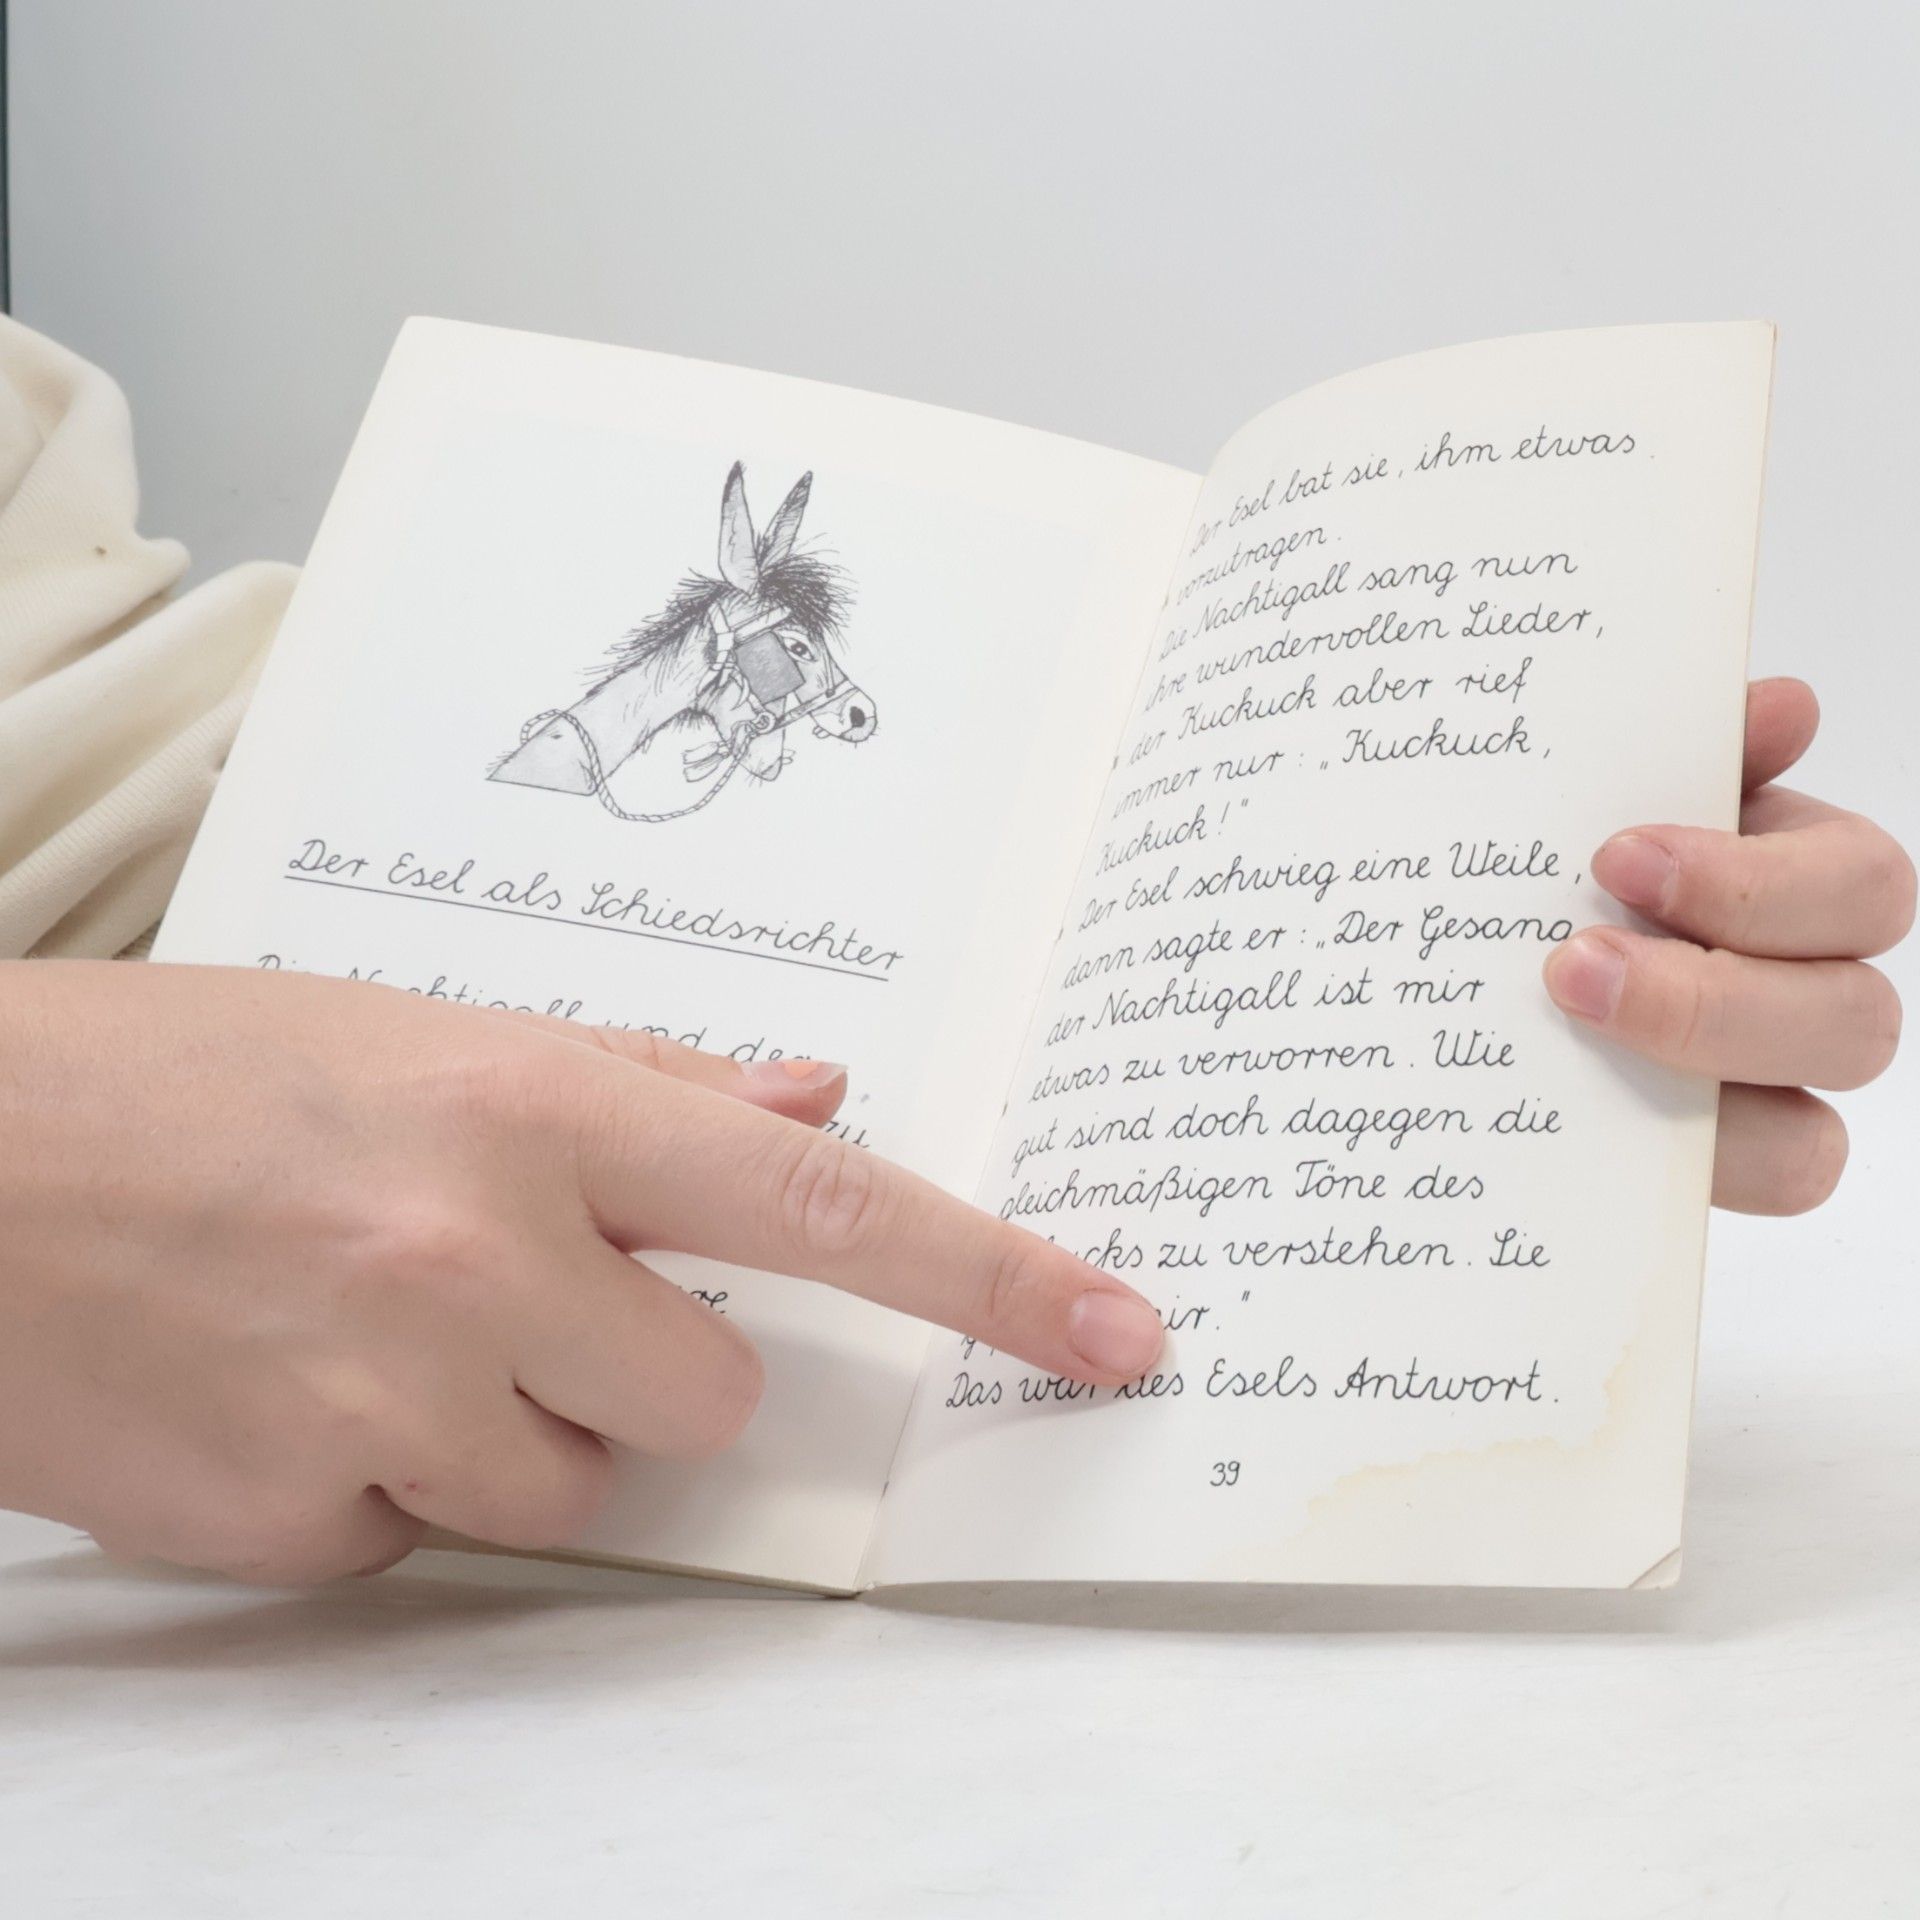 Der Esel als Schiedsrichter
Die Nachtigall und der
zu
Der Esel bat sie, ihm etwas
vorzutragen.
Die Nachtigall sang nun
ihre wundervollen Lieder,
der Kuckuck aber rief
immer nur: „Kuckuck,
Kuckuck!"
Der Esel schwieg eine Weile,
dann sagte er: „Der Gesang
der Nachtigall ist mir
etwas zu verworren. Wie
gut sind doch dagegen die
gleichmäßigen Töne des
zu verstehen. Sie
mir."
Das war des Esels Antwort.
39